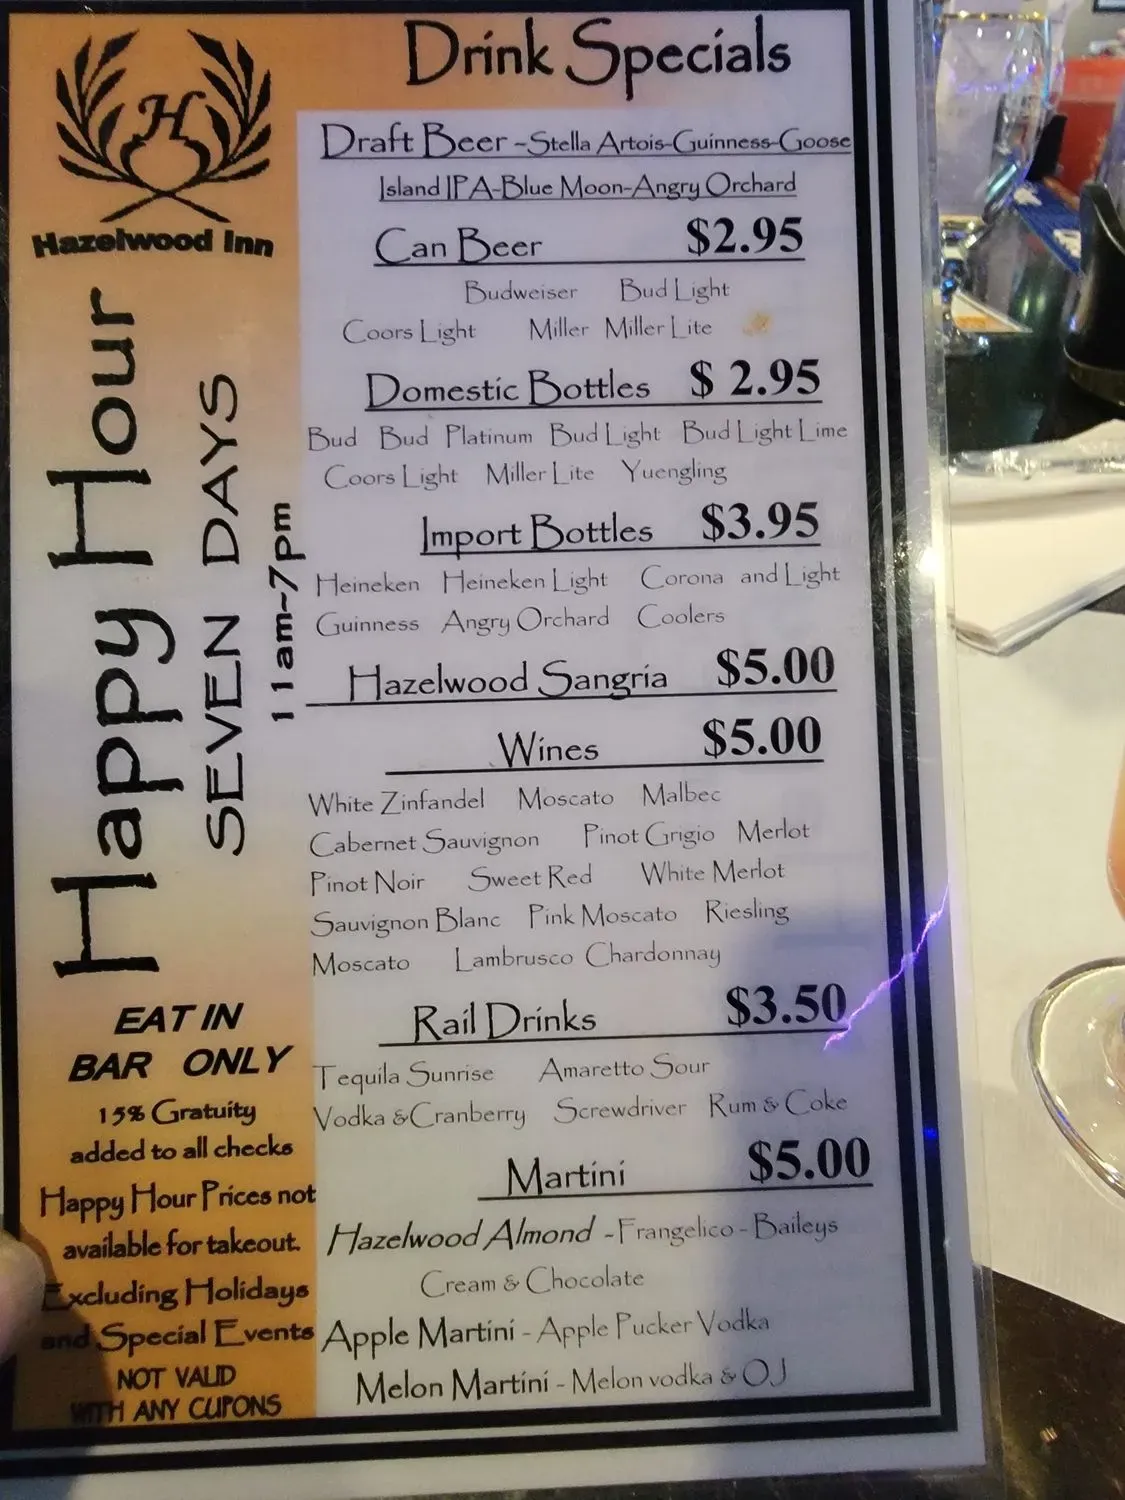 H
Hazelwood Inn
Happy Hour
SEVEN DAYS
11am-7pm
EAT IN
BAR ONLY
15% Gratuity
added to all checks
Happy Hour Prices not
available for takeout.
Excluding Holidays
and Special Events
NOT VALID
WITH ANY CUPONS
Drink Specials
Draft Beer -Stella Artois-Guinness-Goose
Island IPA-Blue Moon-Angry Orchard
Can Beer $2.95
Budweiser Bud Light
Coors Light Miller Miller Lite
Domestic Bottles $ 2.95
Bud Bud Platinum Bud Light Bud Light Lime
Coors Light Miller Lite Yuengling
Import Bottles $3.95
Heineken Heineken Light Corona and Light
Guinness Angry Orchard Coolers
Hazelwood Sangria $5.00
Wines $5.00
White Zinfandel Moscato Malbec
Cabernet Sauvignon Pinot Grigio Merlot
Pinot Noir Sweet Red White Merlot
Sauvignon Blanc Pink Moscato Riesling
Moscato Lambrusco Chardonnay
Rail Drinks $3.50
Tequila Sunrise Amaretto Sour
Vodka & Cranberry Screwdriver Rum & Coke
Martini $5.00
Hazelwood Almond - Frangelico - Baileys
Cream & Chocolate
Apple Martini - Apple Pucker Vodka
Melon Martini - Melon vodka & OJ